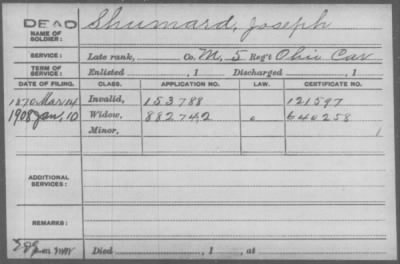 DEAD
NAME OF SOLDIER: Shumard, Joseph
SERVICE: Late rank, Co. M, 5 Reg't Ohio Cav
TERM OF SERVICE: Enlisted , 1 Discharged , 1
DATE OF FILING. CLASS. APPLICATION NO. LAW. CERTIFICATE NO.
1870 Mar 14 Invalid, 153788 121597
1908 Jan, 10 Widow, 882742 640258
Minor,
ADDITIONAL SERVICES:
REMARKS:
Died , 1 , at